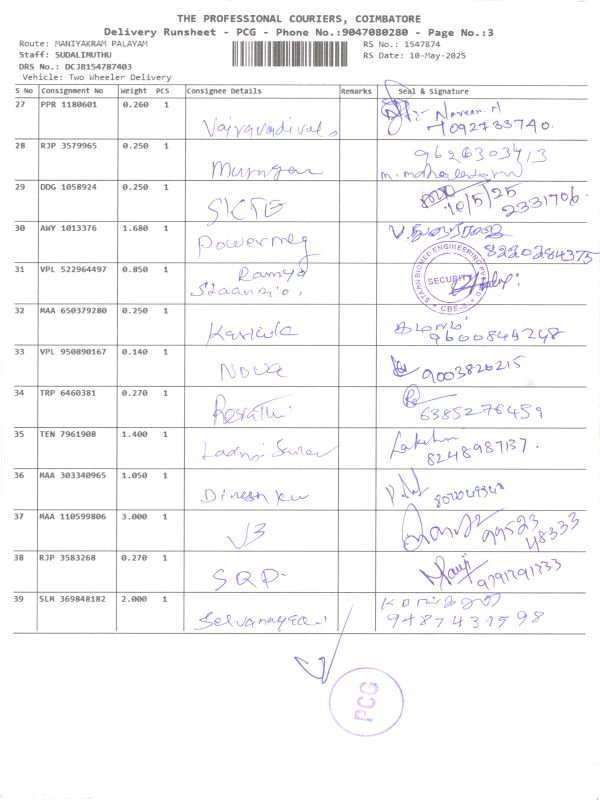 THE PROFESSIONAL COURIERS, COIMBATORE
Delivery Runsheet - PCG - Phone No.:9047080280 - Page No.:3
Route: MANIYAKRAM PALAYAM RS No.: 1547874
Staff: SUDALIMUTHU RS Date: 10-May-2025
DRS No.: DCJB154787403
Vehicle: Two Wheeler Delivery
S No Consignment No Weight PCS Consignee Details Remarks Seal & Signature
27 PPR 1180601 0.260 1 Naveen.M
Vajravadivalo 7092733740.
28 RJP 3579965 0.250 1 9626303413
Murugan
29 DDG 1058924 0.250 1 10/5/25
SKTG 2331706
30 AWY 1013376 1.680 1
Powermeg 8220284375
31 VPL 522964497 0.850 1 Ramya STAAN BIOMED ENGINEERING PVT LTD
SECURITY
CBE-5
32 MAA 650379280 0.250 1
9600844248
33 VPL 950890167 0.140 1
Nova 9003826215
34 TRP 6460381 0.270 1
6385276459
35 TEN 7961908 1.400 1 Lakshmi
8248987137.
36 MAA 303340965 1.050 1
Dinesh Ku
37 MAA 110599806 3.000 1 99523
V3 48333
38 RJP 3583268 0.270 1
SRP 9791291733
39 SLM 369848182 2.000 1
Selvanayaki 9487437598
PCG